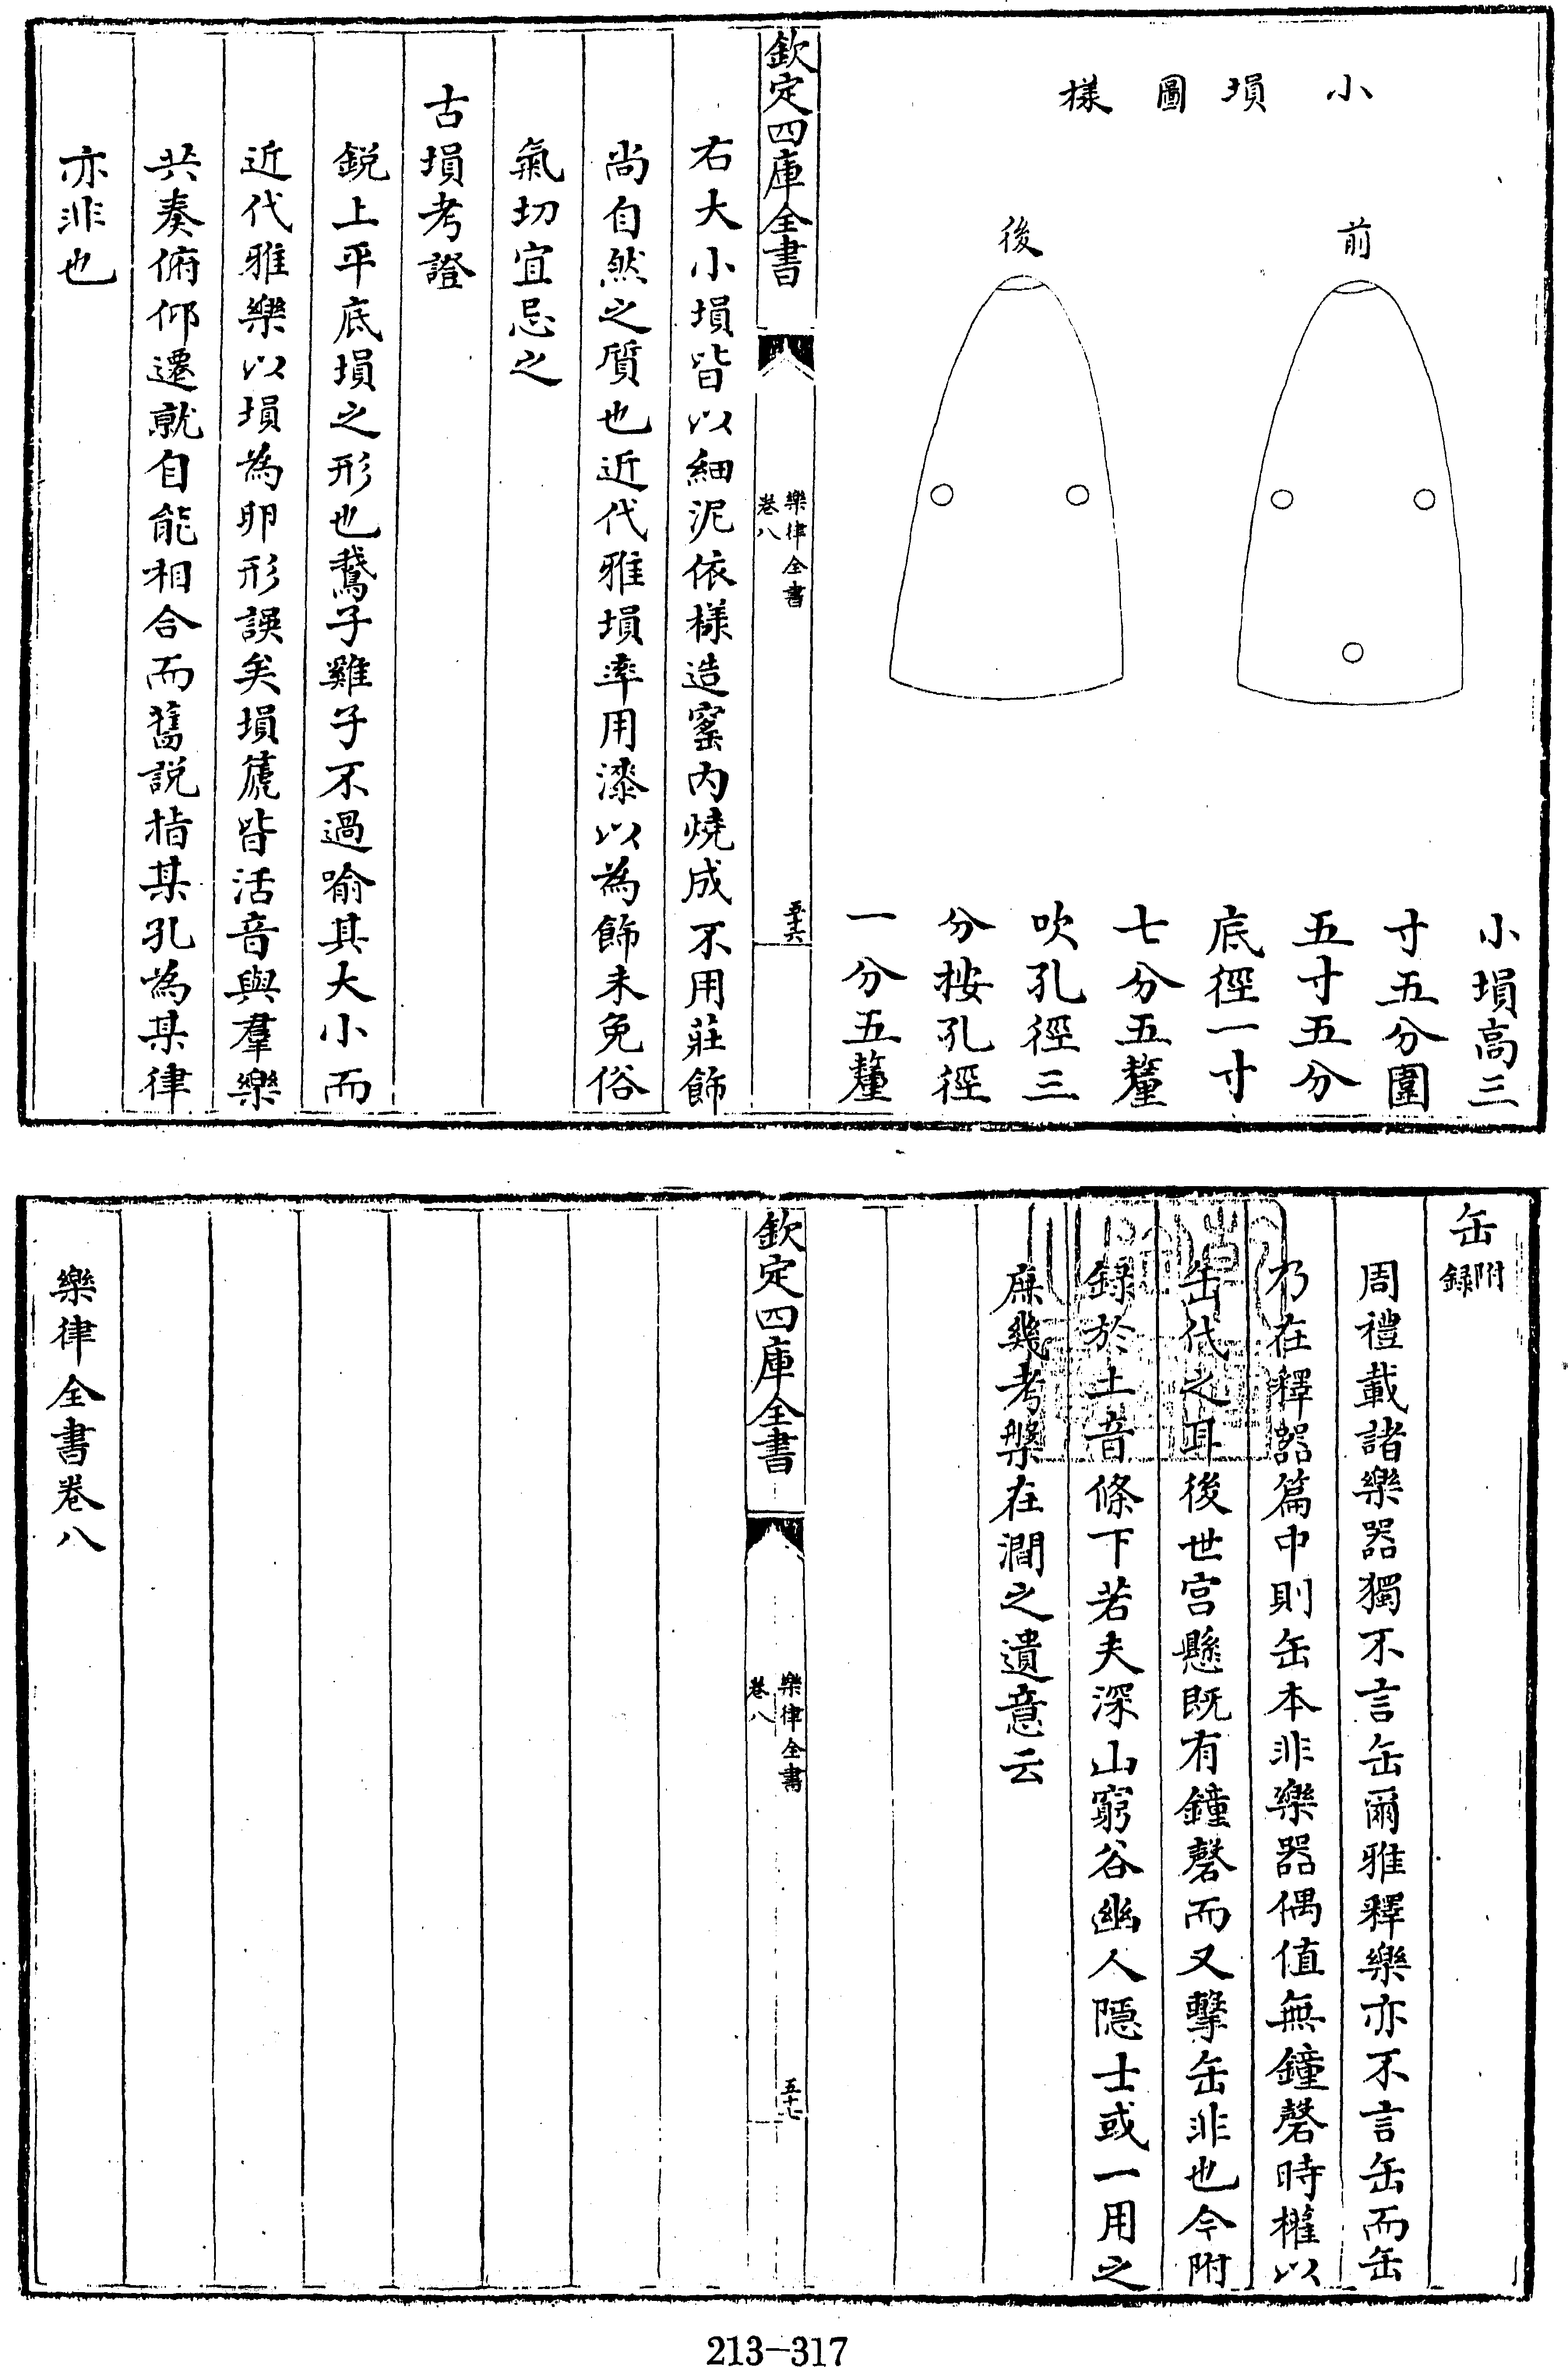 小塤圖樣
前
後
小塤高三
寸五分圍
五寸五分
底徑一寸
七分五釐
吹孔徑三
分按孔徑
一分五釐
欽定四庫全書
樂律全書
卷八
五十六
右大小塤皆以細泥依樣造窰内燒成不用莊飾
尚自然之質也近代雅塤率用漆以為飾未免俗
氣切宜忌之
古塤考證
銳上平底塤之形也鵞子雞子不過喻其大小而
近代雅樂以塤為卵形誤矣塤篪皆活音與羣樂
共奏俯仰遷就自能相合而舊説指某孔為某律
亦非也
缶附錄
周禮載諸樂器獨不言缶爾雅釋樂亦不言缶而缶
乃在釋器篇中則缶本非樂器偶值無鐘磬時權以
缶代之耳後世宮懸既有鐘磬而又擊缶非也今附
錄於土音條下若夫深山窮谷幽人隱士或一用之
庶幾考槃在澗之遺意云
欽定四庫全書
樂律全書
卷八
五十七
樂律全書卷八
213-317